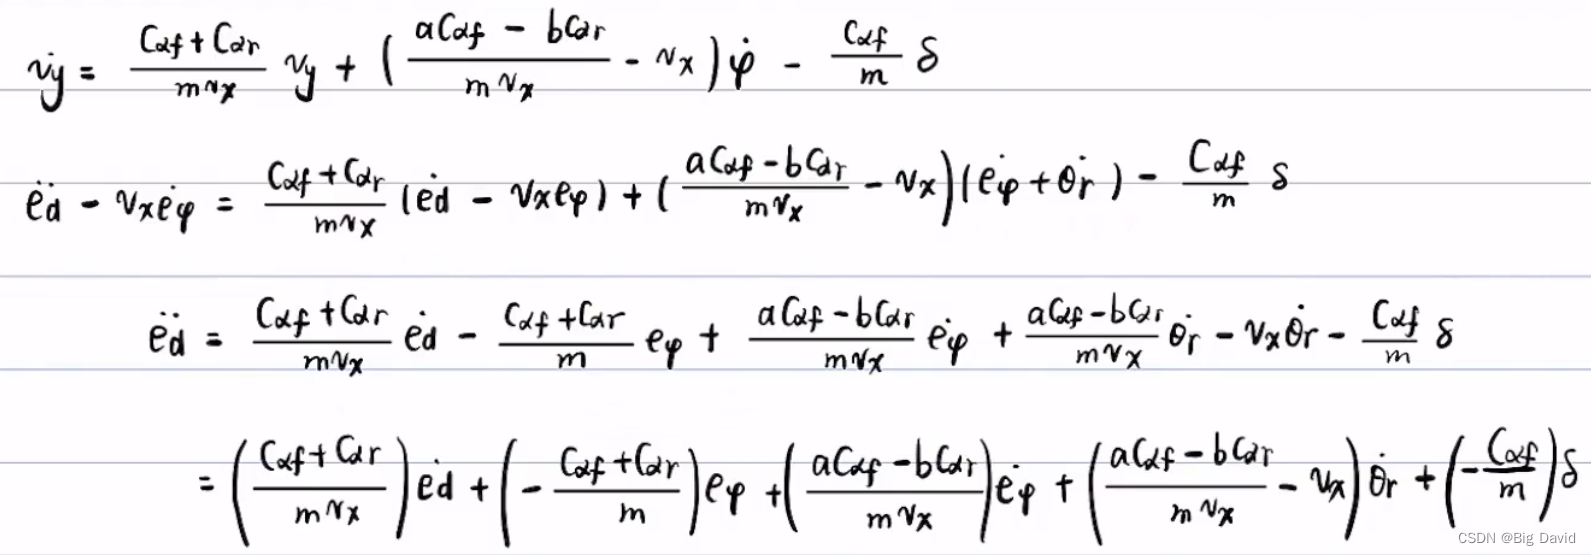 v̇y = (Cαf + Cαr)/(m vx) vy + ((aCαf − bCαr)/(m vx) − vx) φ̇ − (Cαf/m) δ
ëd − vx ėφ = (Cαf + Cαr)/(m vx) (ėd − vx eφ) + ((aCαf − bCαr)/(m vx) − vx)(ėφ + θ̇r) − (Cαf/m) δ
ëd = (Cαf + Cαr)/(m vx) ėd − (Cαf + Cαr)/m eφ + (aCαf − bCαr)/(m vx) ėφ + (aCαf − bCαr)/(m vx) θ̇r − vx θ̇r − (Cαf/m) δ
= ((Cαf + Cαr)/(m vx)) ėd + (−(Cαf + Cαr)/m) eφ + ((aCαf − bCαr)/(m vx)) ėφ + ((aCαf − bCαr)/(m vx) − vx) θ̇r + (−Cαf/m) δ
CSDN @Big David